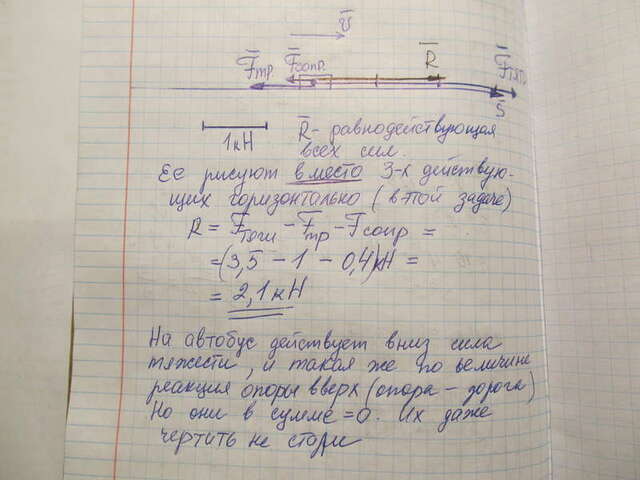 v̄
F̄тр. F̄сопр. R̄ F̄тяги
S̄
1кН R̄ - равнодействующая
всех сил.
Её рисуют вместо 3-х действую-
щих горизонтально (в этой задаче)
R = F̄тяги - F̄тр - F̄сопр =
=(3,5 - 1 - 0,4)кН =
= 2,1кН
На автобус действует вниз сила
тяжести, и такая же по величине
реакция опоры вверх (опора - дорога)
Но они в сумме =0. Их даже
чертить не стали